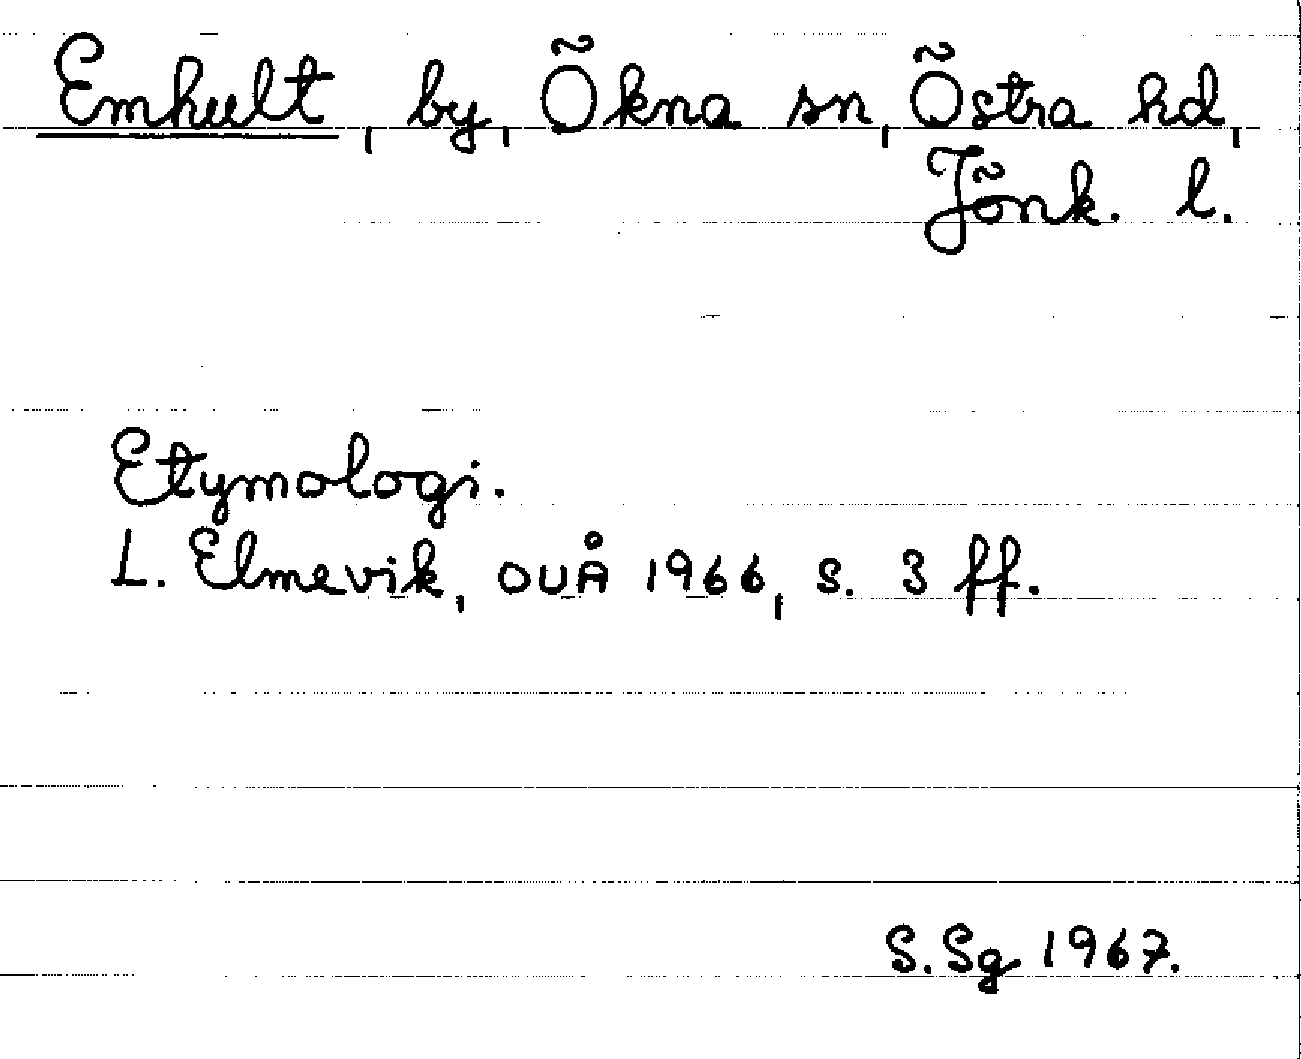 Emhult, by, Ökna sn, Östra hd,
Jönk. l.
Etymologi.
L. Elmevik, OUÅ 1966, s. 3 ff.
S.Sg 1967.